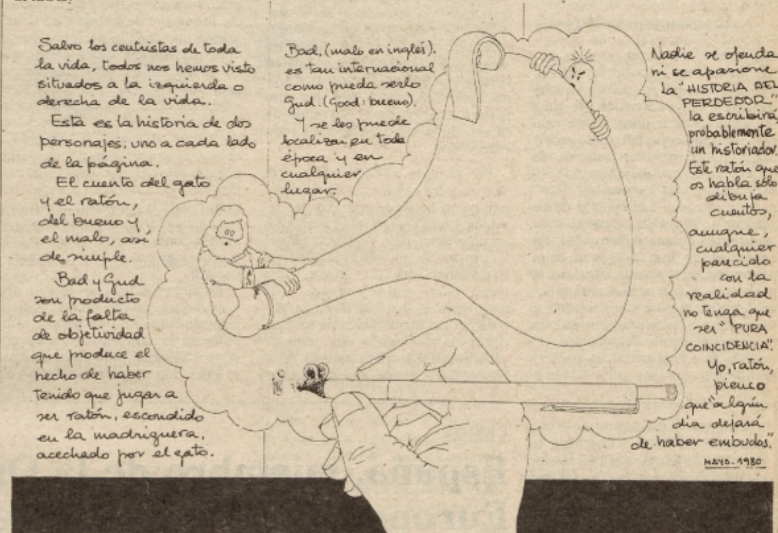 Salvo los centristas de toda
la vida, todos nos hemos visto
situados a la izquierda o
derecha de la vida.
Esta es la historia de dos
personajes, uno a cada lado
de la página.
El cuento del gato
y el ratón,
del bueno y
el malo, así
de simple.
Bad y Gud
son producto
de la falta
de objetividad
que produce el
hecho de haber
tenido que jugar a
ser ratón, escondido
en la madriguera,
acechado por el gato.
Bad, (malo en inglés).
es tan internacional
como pueda serlo
Gud. (Good: bueno).
Y se les puede
localizar en toda
época y en
cualquier
lugar.
Nadie se ofenda
ni se apasione
la "HISTORIA DEL
PERDEDOR"
la escribirá
probablemente
un historiador.
Este ratón que
os habla sólo
dibuja
cuentos,
aunque,
cualquier
parecido
con la
realidad
no tenga que
ser "PURA
COINCIDENCIA".
Yo, ratón,
pienso
que "algún
día dejará
de haber embudos."
MAYO-1980